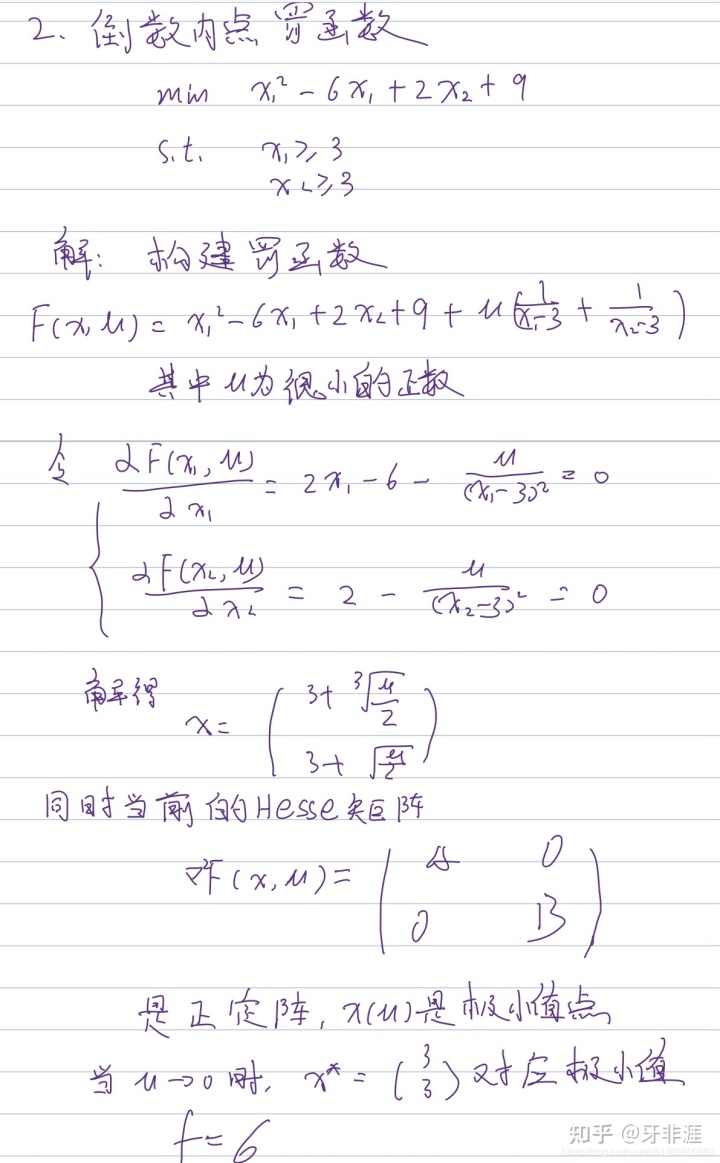 2、倒数内点罚函数
min x₁² - 6x₁ + 2x₂ + 9
s.t. x₁ ≥ 3
x₂ ≥ 3
解: 构建罚函数
F(x, μ) = x₁² - 6x₁ + 2x₂ + 9 + μ(1/(x₁-3) + 1/(x₂-3))
其中 μ为很小的正数
令 ∂F(x₁, μ)/∂x₁ = 2x₁ - 6 - μ/(x₁-3)² = 0
∂F(x₂, μ)/∂x₂ = 2 - μ/(x₂-3)² = 0
解得 x = (3+∛(μ/2)
3+√(μ/2))
同时当前的Hesse矩阵
∇²F(x, μ) = (4 0
0 B)
是正定阵, x(μ)是极小值点
当 μ→0 时, x* = (3 3) 对应极小值
f = 6
知乎 @牙非涯